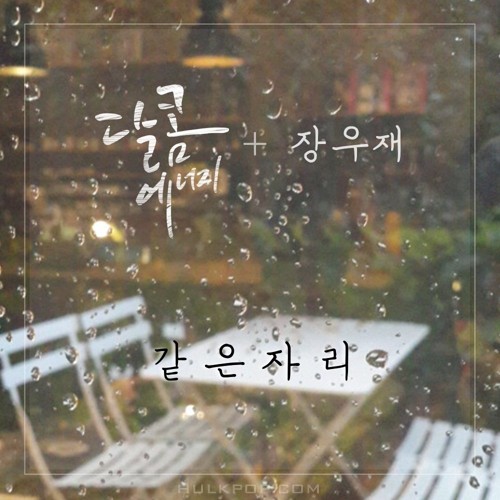 달콤
에너지 + 장우재
같은자리
HULKPOP.COM